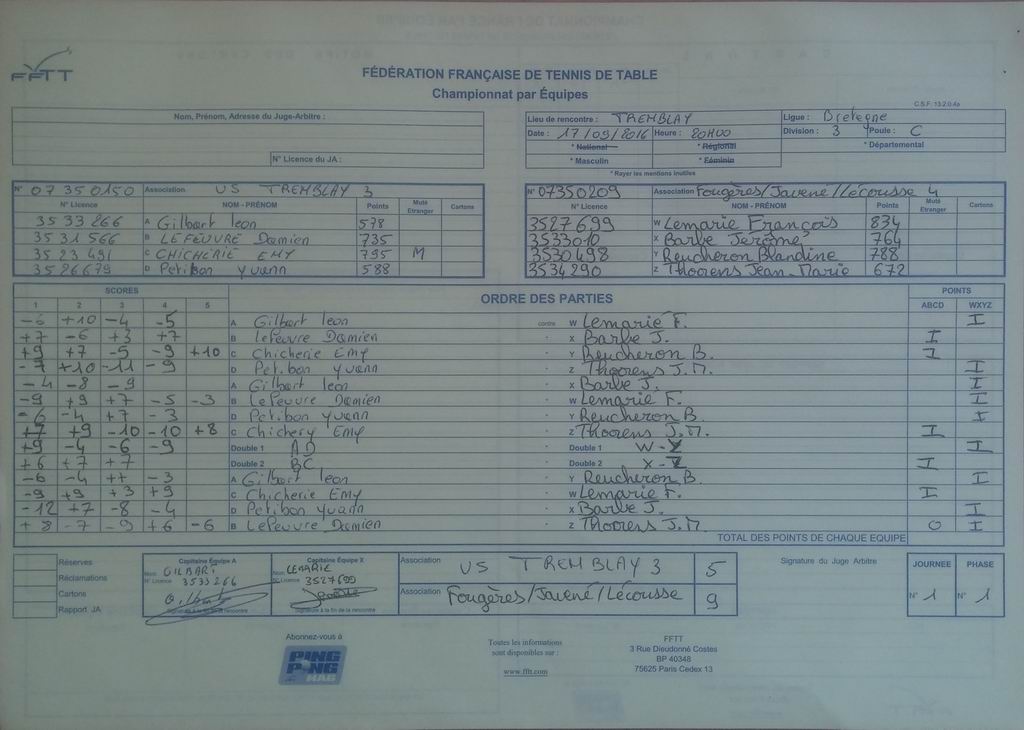 FFTT
FÉDÉRATION FRANÇAISE DE TENNIS DE TABLE
Championnat par Équipes
C.S.F. 13.2.0.4a
Nom, Prénom, Adresse du Juge-Arbitre :
N° Licence du JA :
Lieu de rencontre : TREMBLAY
Ligue : Bretagne
Date : 17/09/2016 Heure : 20H00
Division : 3 Poule : C
* National * Régional * Départemental
* Masculin * Féminin
* Rayer les mentions inutiles
N° 07350150 Association US TREMBLAY 3
N° Licence NOM - PRÉNOM Points Muté Etranger Cartons
3533266 A Gilbart leon 578
3531566 B LEFEUVRE Damien 735
3523491 C CHICHERIE EMY 795 M
3526679 D Petibon Yvann 588
N° 07350209 Association Fougères/Javené/Lécousse 4
N° Licence NOM - PRÉNOM Points Muté Etranger Cartons
3527699 W Lemarie François 834
3533010 X Barbe Jerôme 764
3530498 Y Reucheron Blandine 788
3534290 Z Thoorens Jean-Marie 672
SCORES ORDRE DES PARTIES POINTS
1 2 3 4 5 ABCD WXYZ
-6 +10 -4 -5 A Gilbart leon contre W Lemarie F. I
+7 -6 +3 +7 B Lefeuvre Damien - X Barbe J. I
+9 +7 -5 -9 +10 C Chicherie EMY - Y Reucheron B. I
-7 +10 -11 -9 D Petibon Yvann - Z Thoorens J.M. I
-4 -8 -9 A Gilbart leon - X Barbe J. I
-9 +9 +7 -5 -3 B Lefeuvre Damien - W Lemarie F. I
-6 -4 +7 -3 D Petibon Yvann - Y Reucheron B. I
+7 +9 -10 -10 +8 C Chichery EMY - Z Thoorens J.M. I
+9 -4 -6 -9 Double 1 AD - Double 1 W - I
+6 +7 +7 Double 2 BC - Double 2 X - I
-6 -4 +7 -3 A Gilbart leon - Y Reucheron B. I
-9 +9 +3 +9 C Chicherie EMY - W Lemarie F. I
-12 +7 -8 -4 D Petibon Yvann - X Barbe J. I
+8 -7 -9 +6 -6 B Lefeuvre Damien - Z Thoorens J.M. 0 I
TOTAL DES POINTS DE CHAQUE EQUIPE
Réserves
Réclamations
Cartons
Rapport JA
Capitaine Equipe A
Nom GILBART
N° Licence 3533266
Signature à la fin de la rencontre
Capitaine Équipe X
Nom LEMARIE
N° Licence 3527699
Signature à la fin de la rencontre
Association US TREMBLAY 3 5
Association Fougères/Javené/Lécousse 9
Signature du Juge Arbitre
JOURNEE PHASE
N° 1 N° 1
Abonnez-vous à
PING PONG MAG
Toutes les informations
sont disponibles sur :
www.fftt.com
FFTT
3 Rue Dieudonné Costes
BP 40348
75625 Paris Cedex 13